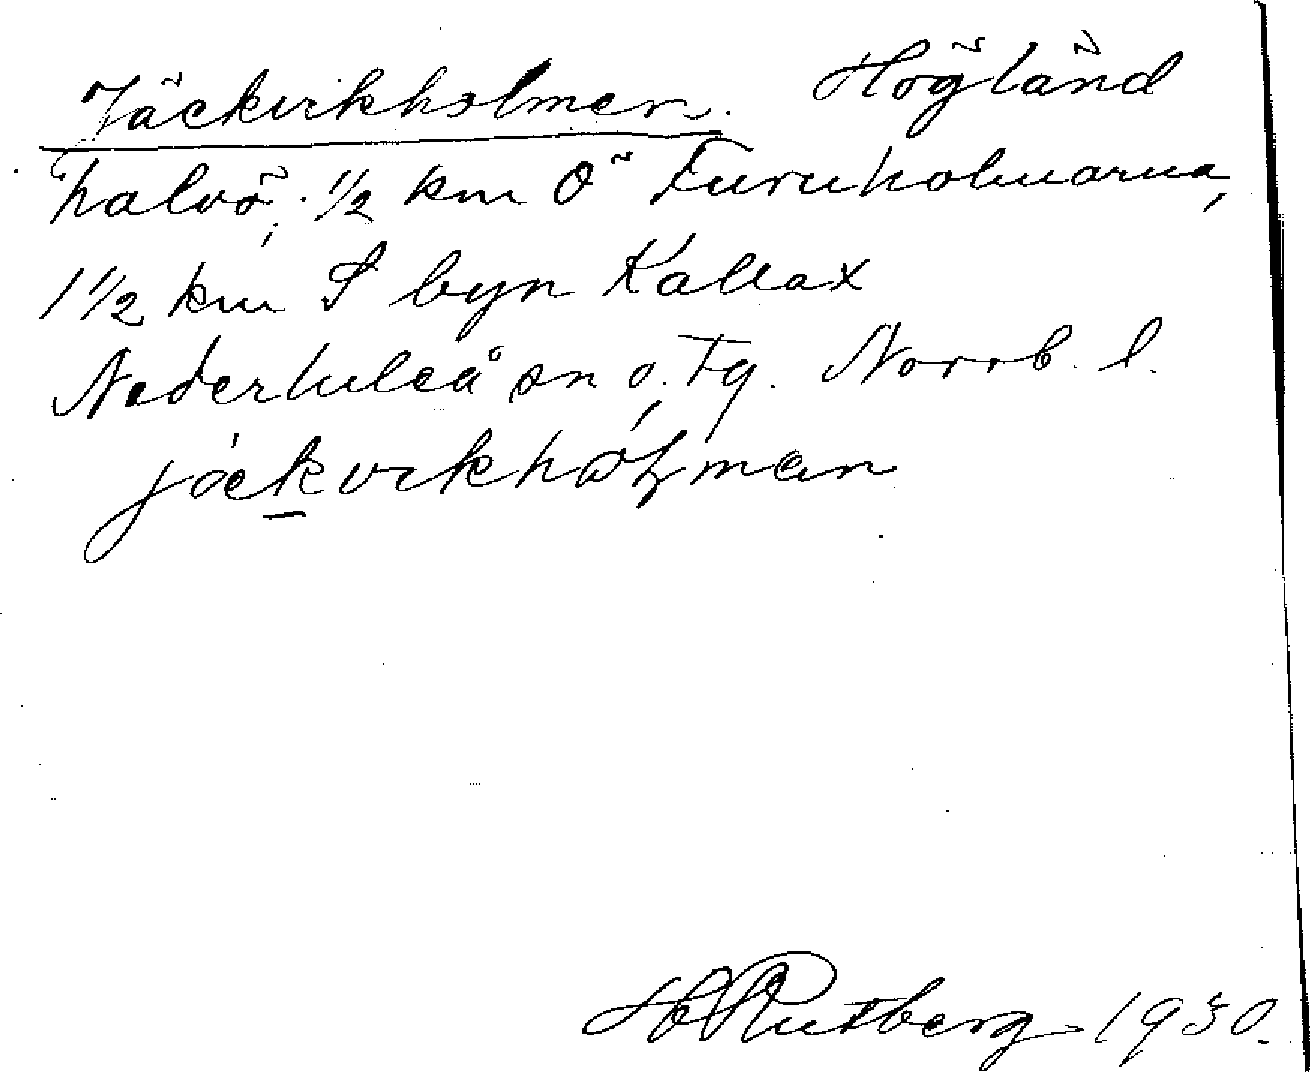 Jäckvikholmen. Högländ
halvö; 1/2 km Ö Furuholmarna,
1 1/2 km S byn Kallax
Nederluleå sn o. Tg. Norrb. l.
jäckvikhɷlman
H Rutberg 1930.